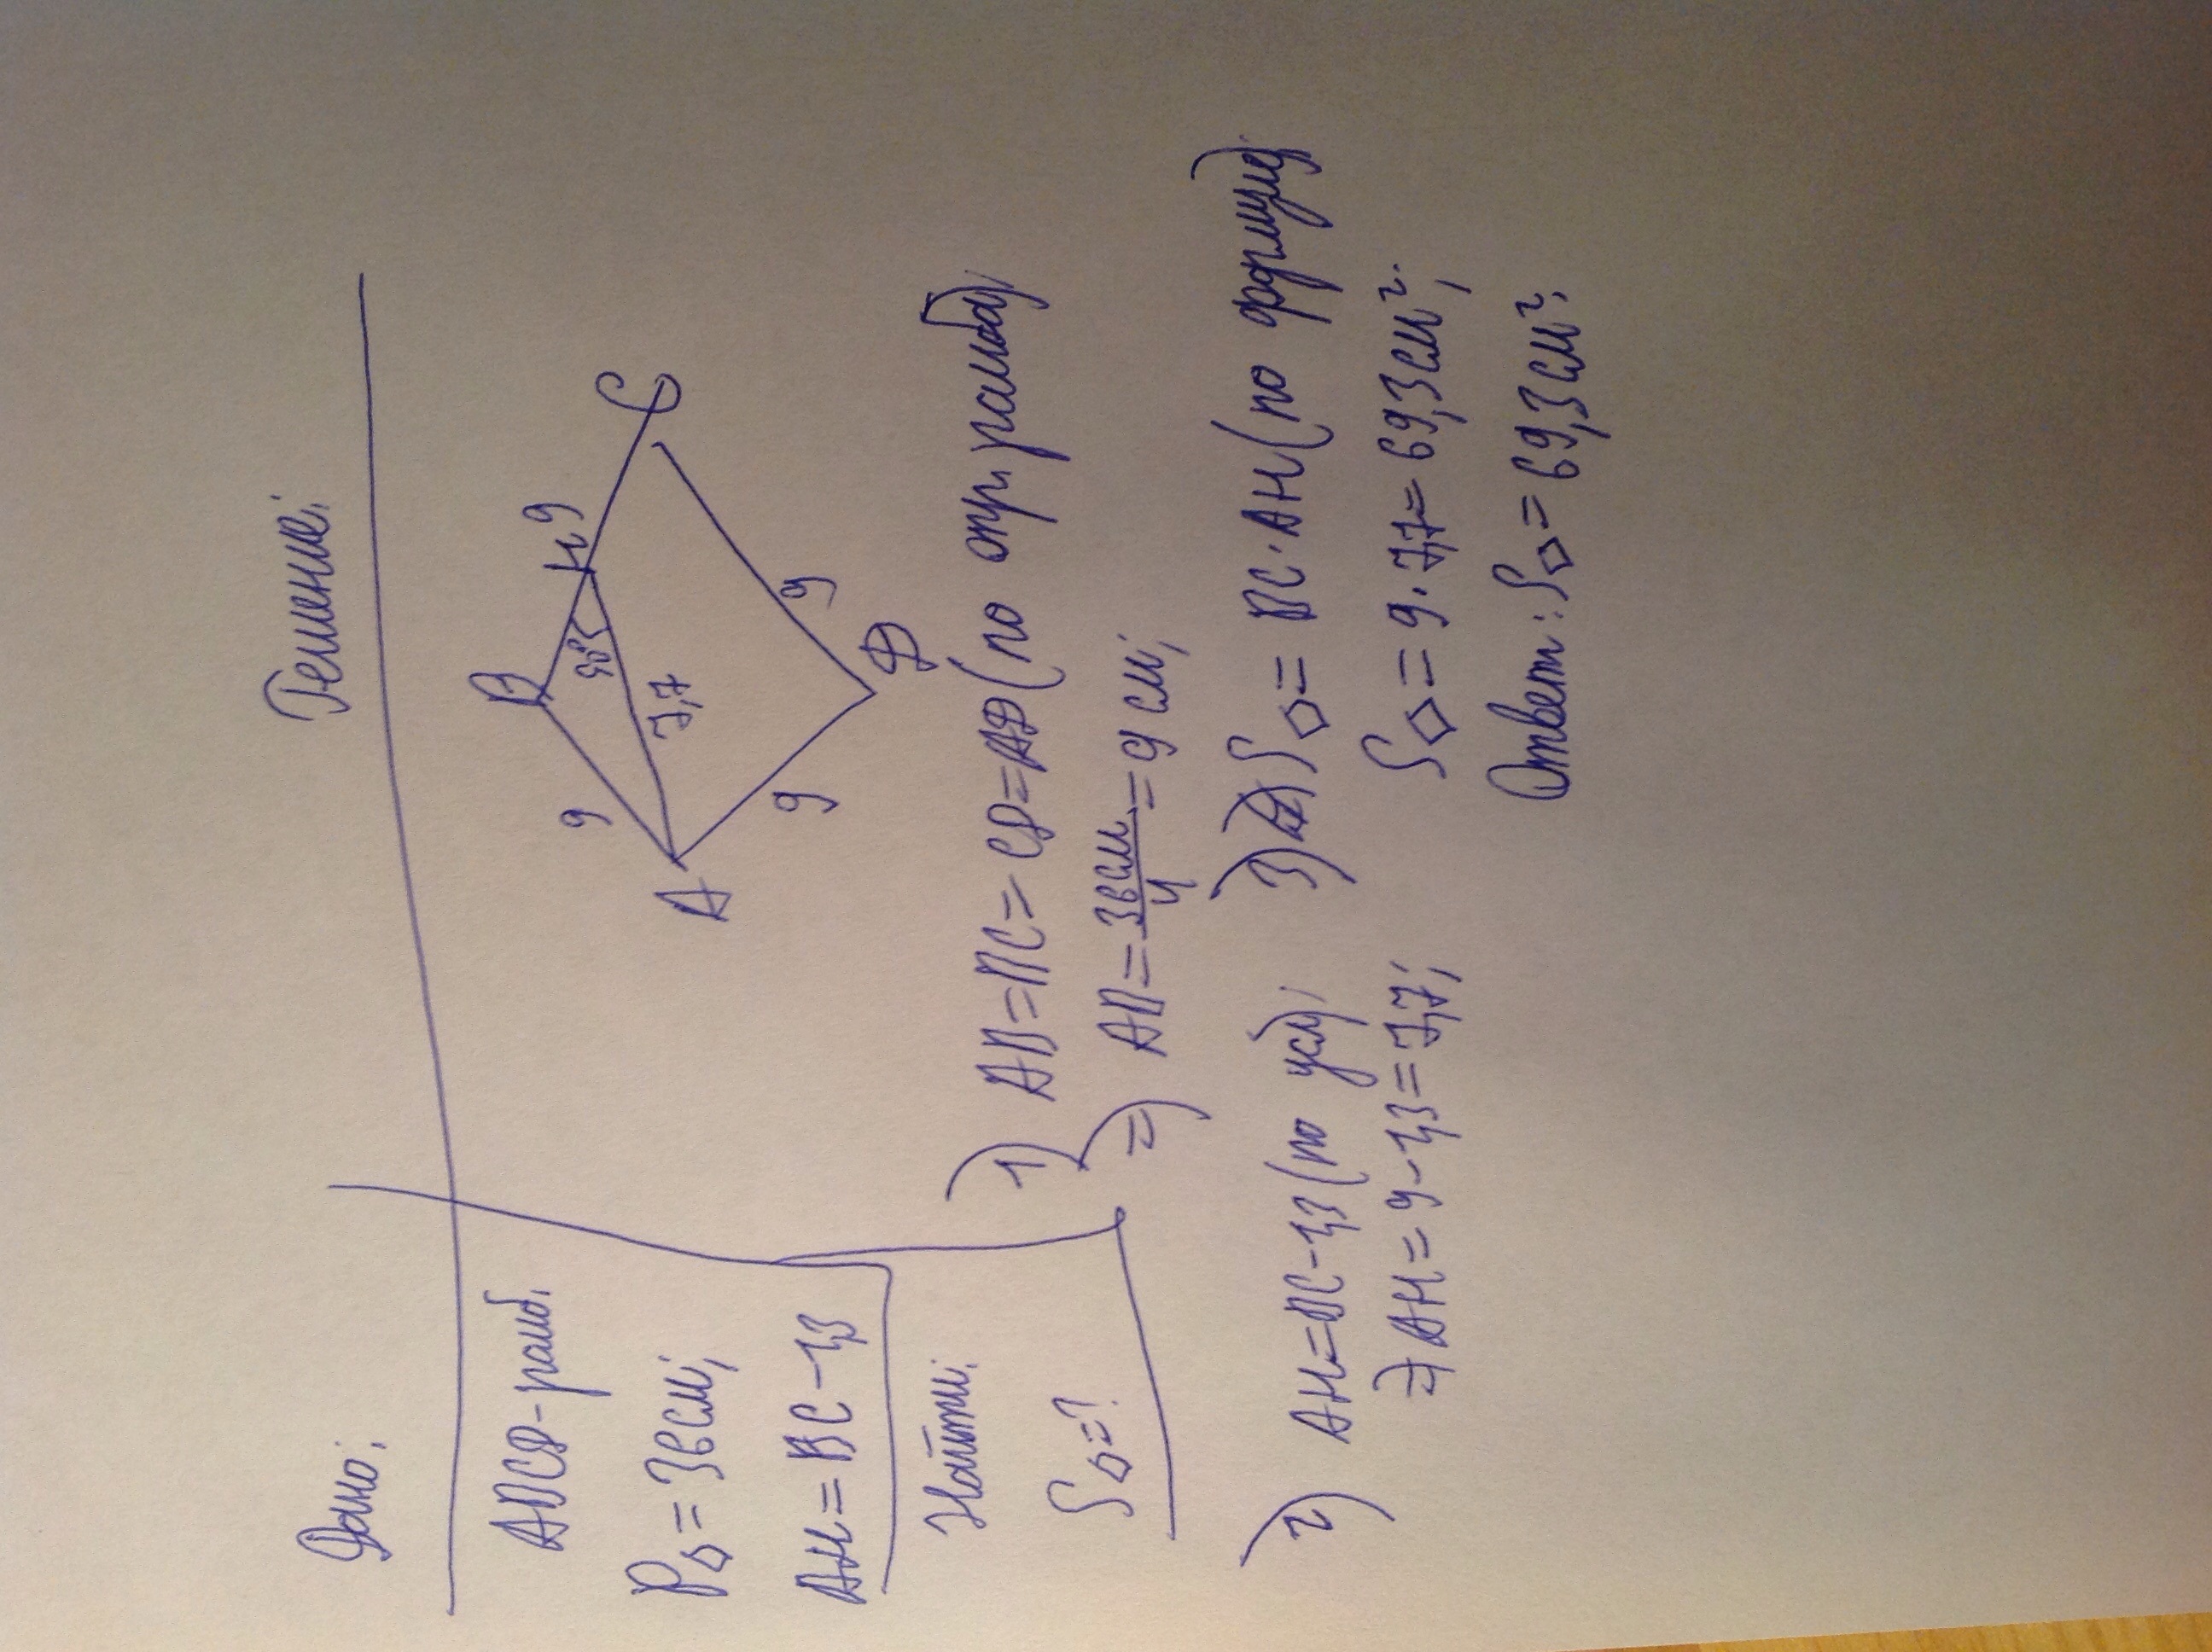 Дано:
Решение:
ABCD-ромб.
P◇=36см;
AH=BC-1,3
Найти:
S◇=?
B
H
9
C
9
90°
7,7
A
9
9
D
1) AB=BC=CD=AD(по опр. ромба)
=) AB=36см/4=9см;
2) AH=BC-1,3(по усл);
=) AH=9-1,3=7,7;
3) S◇=BC·AH(по формуле)
S◇=9·7,7=69,3см²;
Ответ: S◇=69,3см².